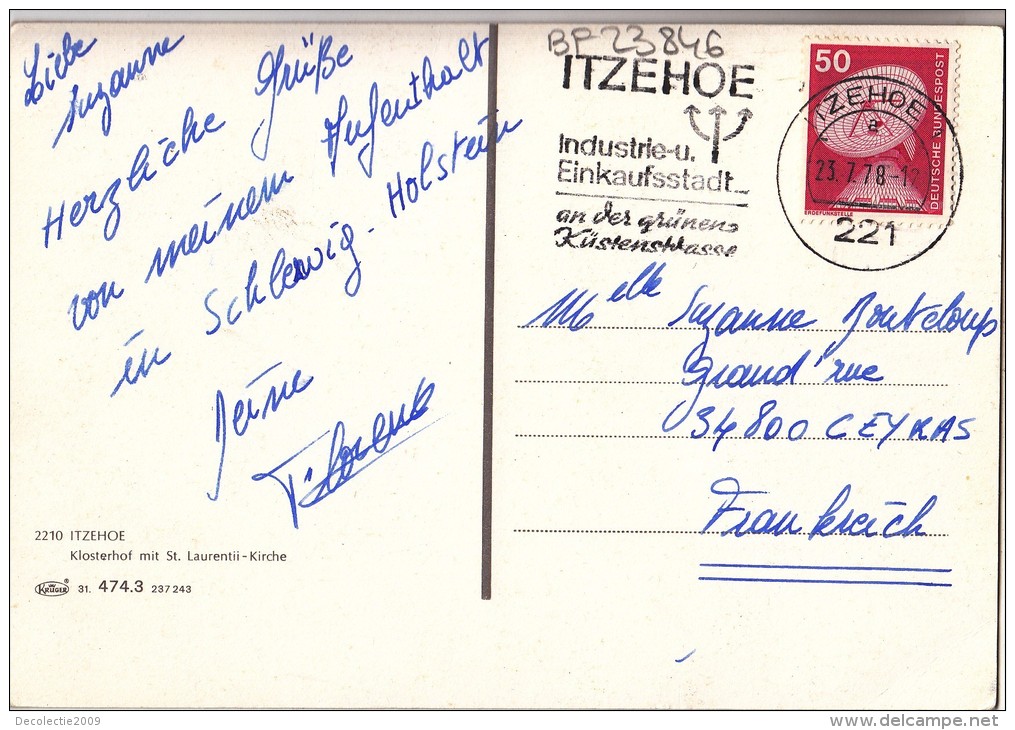 Liebe
Suzanne
Herzliche Grüße
von meinem Aufenthalt
in Schleswig-Holstein
Deine
Florence
2210 ITZEHOE
Klosterhof mit St. Laurentii-Kirche
KRÜGER 31. 474.3 237 243
BF 23846
ITZEHOE
Industrie-u.
Einkaufsstadt
an der grünen
Küstenstrasse
50
DEUTSCHE BUNDESPOST
ERDEFUNKSTELLE
ITZEHOE
a
23.7.78-12
221
Melle Suzanne Bouteloup
Grand'rue
34800 CEYRAS
Frankreich
Decolectie2009
delcampe.net